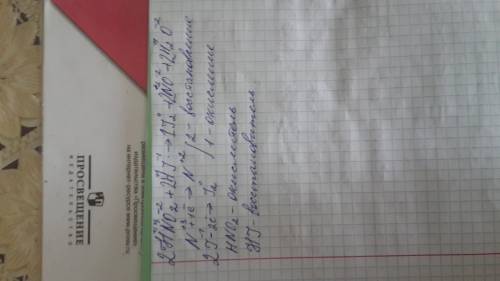 2HNO₂ + 2HJ → J₂ + 2NO + 2H₂O
N⁺³ + 1e → N⁺² | 2 - восстановление
2J⁻¹ - 2e → J₂⁰ | 1 - окисление
HNO₂ - окислитель
HJ восстановитель
ПРОСВЕЩЕНИЕ
ИЗДАТЕЛЬСТВО